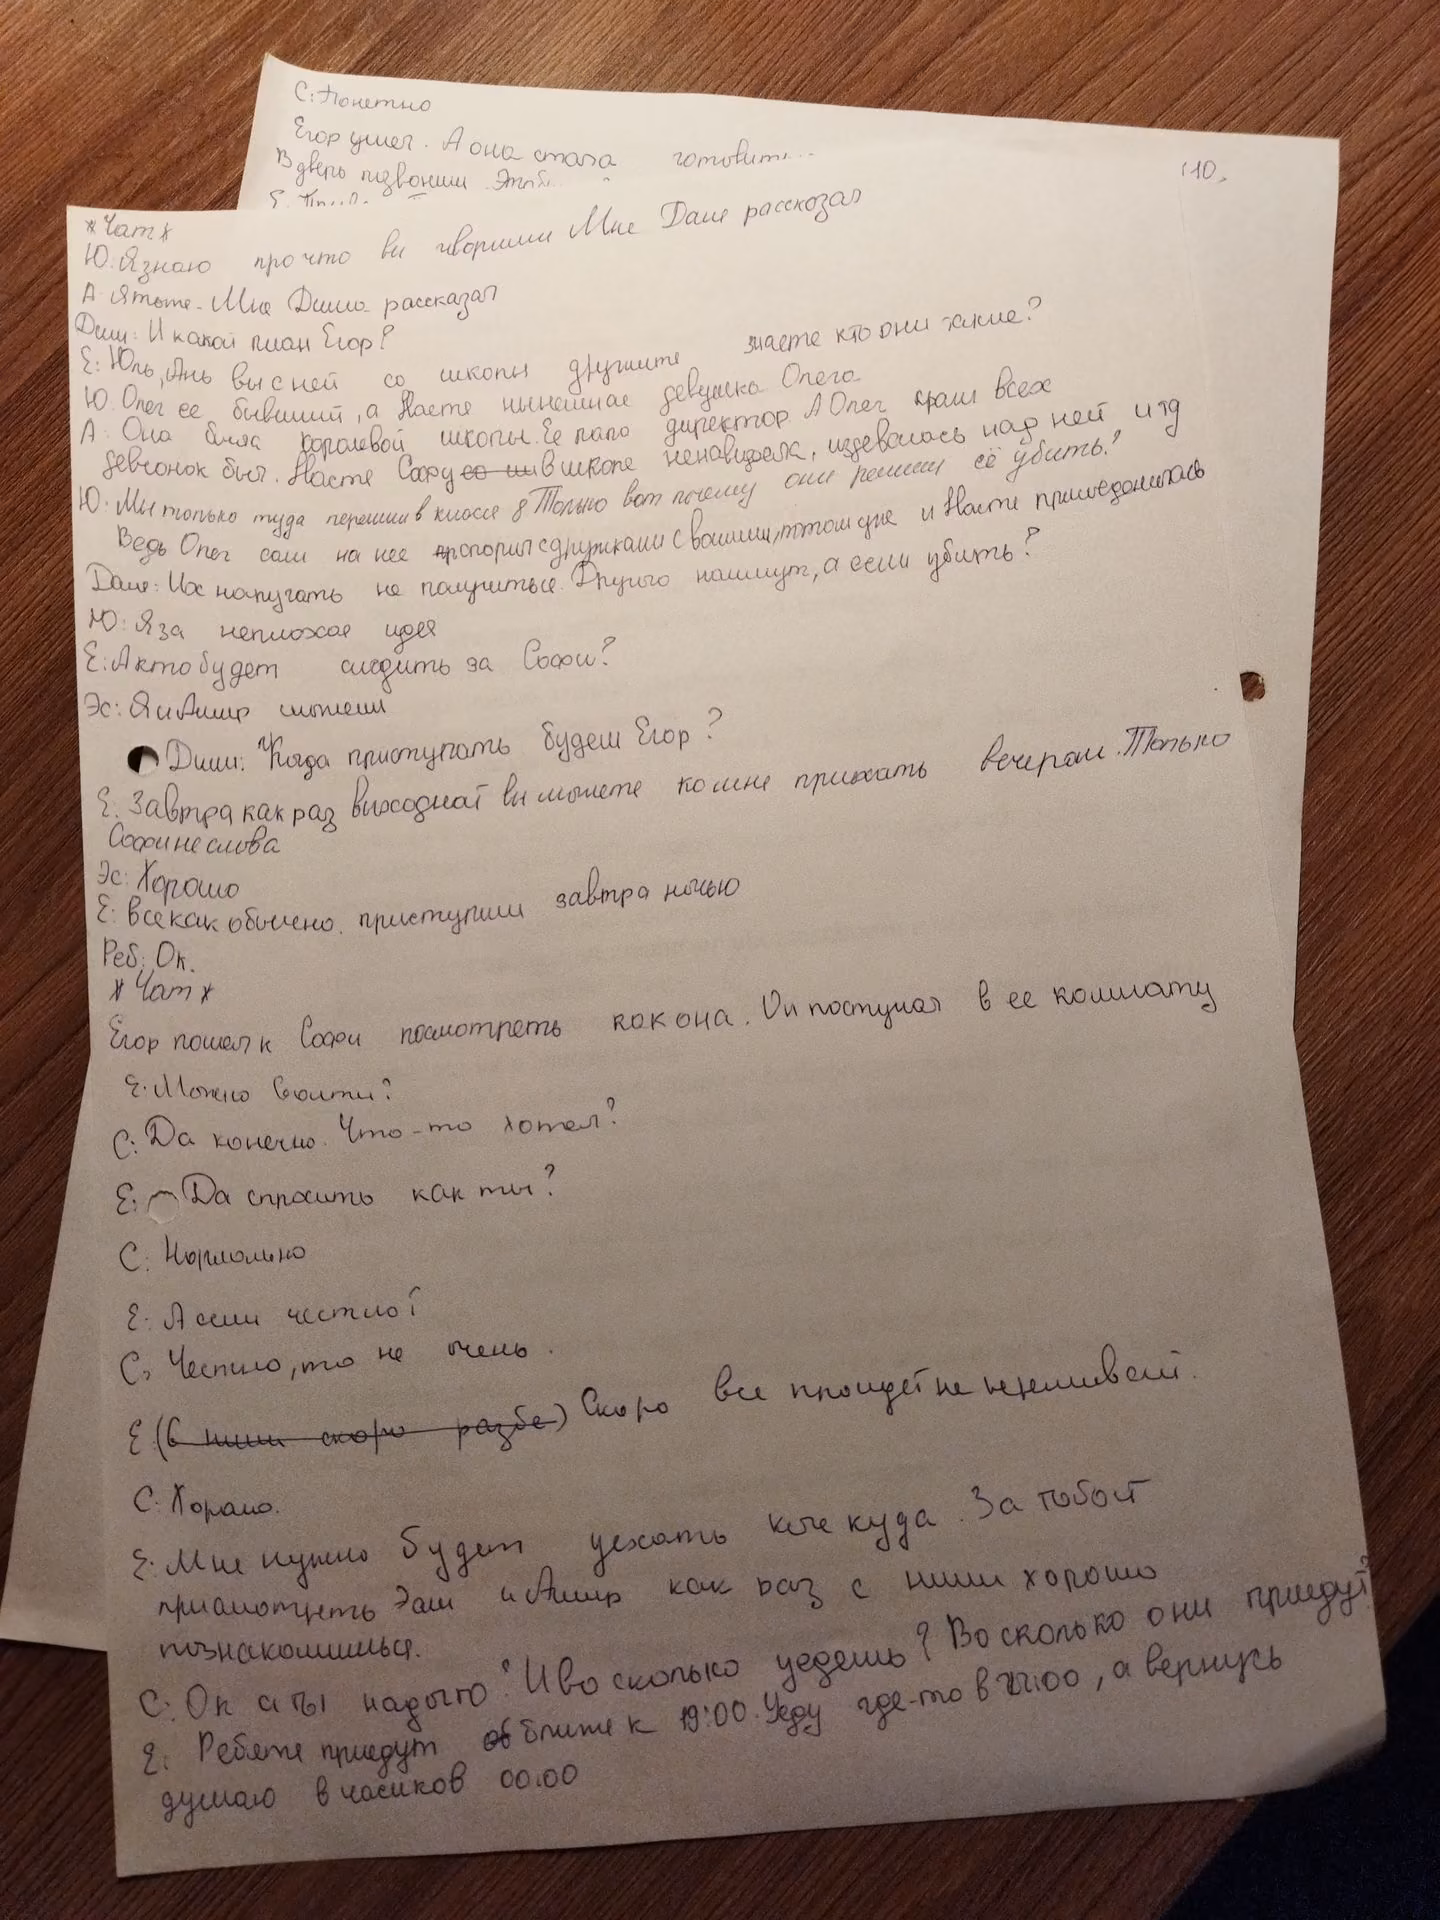 С: Понетно
Егор ушел. А она стала готовить...
В дверь позвонили
10.
*Чат*
Ю: Я знаю про что ви говорили Мне Даше рассказал
А: Я тоже. Мне Дима рассказал
Дим: И какой план Егор?
Е: Юль, Ань вы с ней со школы дружите знаете кто они такие?
Ю: Олег ее бывший, а Насте нынешнае девушка Олега
А: Она была королевой школы. Ее папа директор. А Олег краш всех
девчонок был. Насте Софу в школе ненавидела, издевалась над ней и тд
Ю: Мы только туда перешли в классе 8 Только вот почему они решили её убить?
Ведь Олег сам на нее спорил с дружками с вашими, потом уже и Насте присоеденилась
Даше: Их напугать не получиться. Другого наймут, а если убить?
Ю: Я за неплохае идея
Е: А кто будет следить за Софи?
Эс: Я и Амир можем
Дим: Когда приступать будем Егор?
Е. Завтра как раз выходной ви можете ко мне приехать вечерам. Только
Софи не слова
Эс: Хорошо
Е: все как обычно. приступим завтра ночью
Реб: Ок.
*Чат*
Егор пошел к Софи посмотреть как она. Он постучал в ее комнату
Е: Можно воити?
С: Да конечно. Что-то хотел?
Е: Да спросить как ты?
С: Нормально
Е: А если честно?
С: Честно, то не очень.
Е Скоро все проидет не переживай.
С: Хорошо.
Е: Мне нужно будет уехать кое куда. За тобой
присмотреть Эсм и Амир как раз с ними хорошо
познакомишься.
С: Ок а ты надолго? И во сколько уедешь? Во сколько они приедут?
Е: Ребяте приедут ближе к 19:00. Уеду где-то в :00, а вернусь
думаю в часиков 00:00